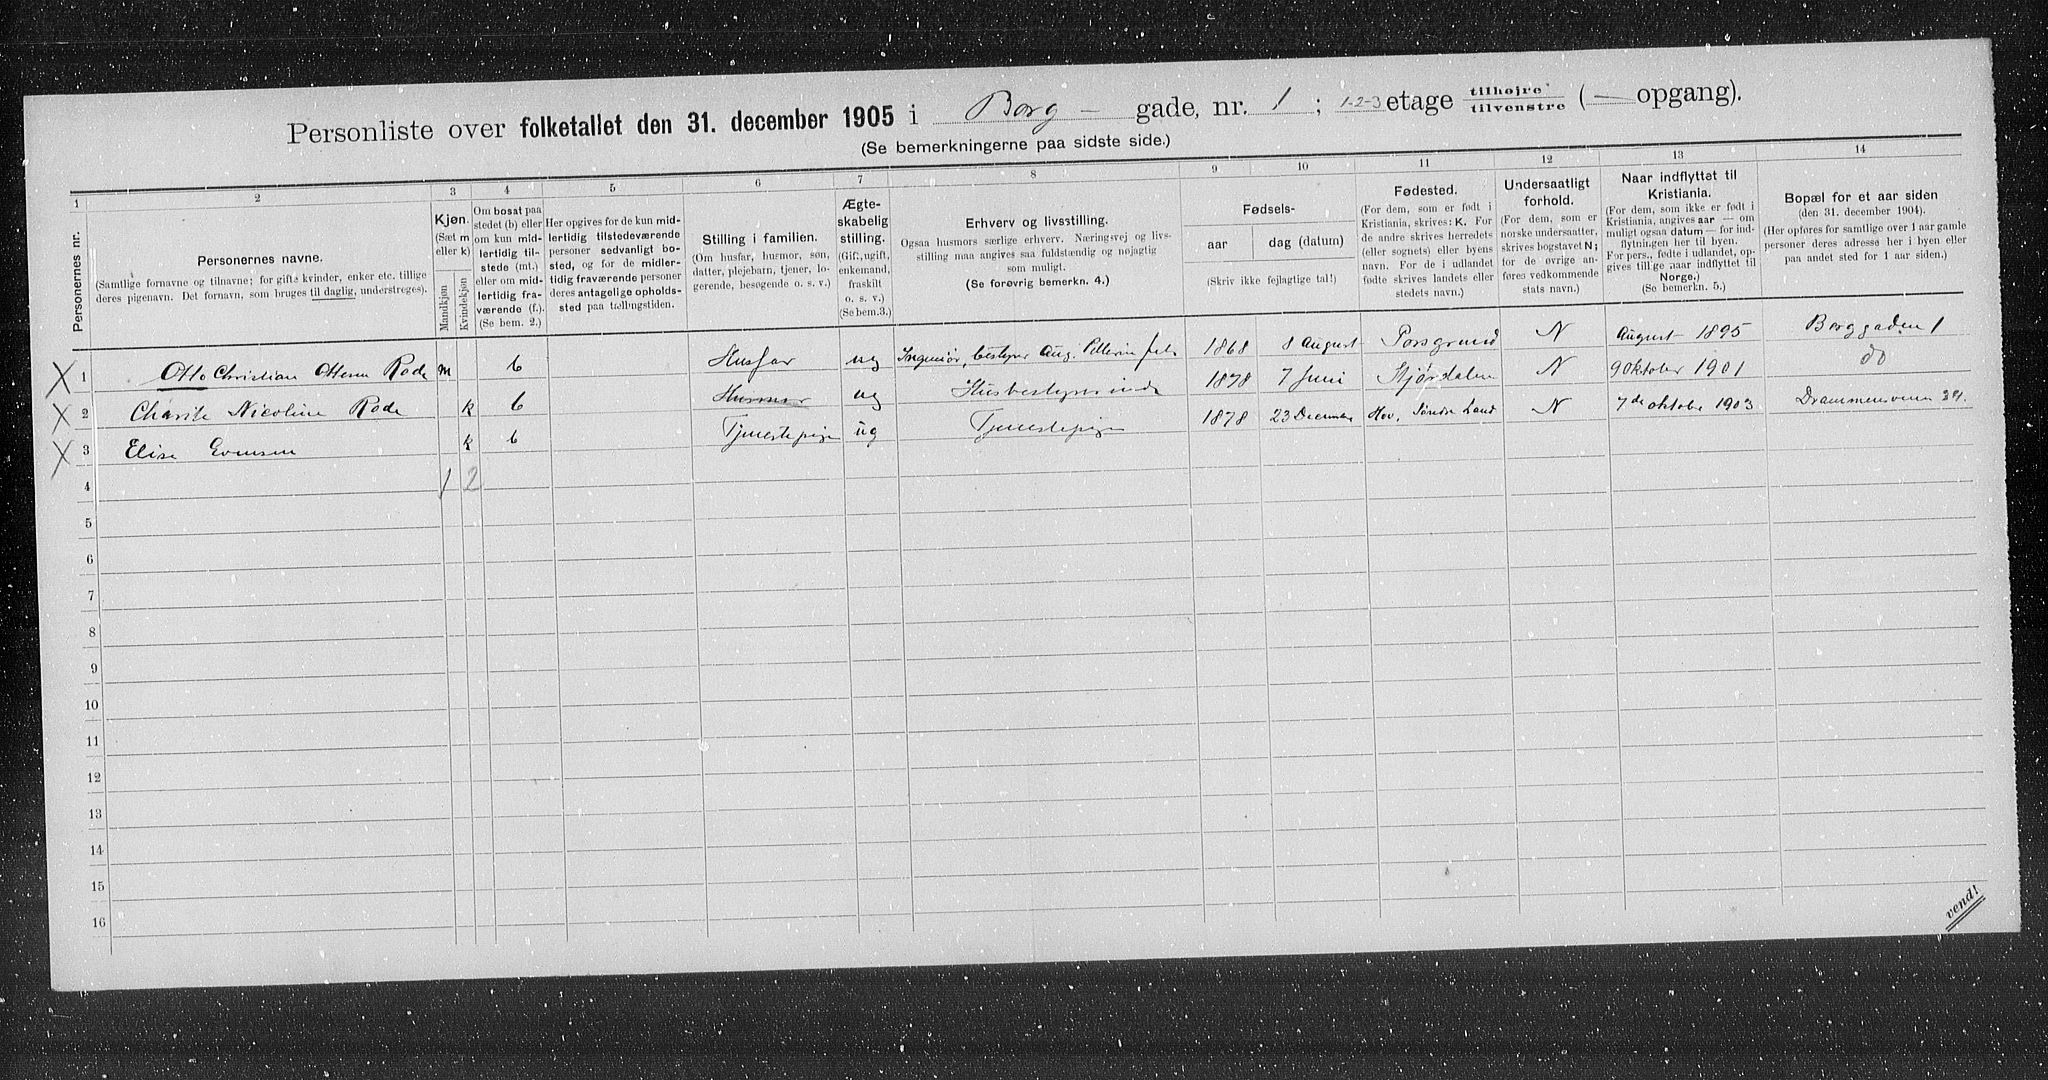 Personliste over folketallet den 31. december 1905 i Borg – gade, nr. 1 ; 1-2-3 etage tilhøjre tilvenstre ( — opgang).
(Se bemerkningerne paa sidste side.)
1 2 3 4 5 6 7 8 9 10 11 12 13 14
Personernes nr.
Personernes navne.
(Samtlige fornavne og tilnavne; for gifte kvinder, enker etc. tillige
deres pigenavn. Det fornavn, som bruges til daglig, understreges).
Kjøn.
(Sæt m
eller k)
Mandkjøn
Kvindekjøn
Om bosat paa
stedet (b) eller
om kun mid-
lertidig til-
stede (mt.)
eller om mid-
lertidig fra-
værende (f.).
(Se bem. 2.)
Her opgives for de kun mid-
lertidig tilstedeværende
personer sedvanlig bo-
sted, og for de midler-
tidig fraværende personer
deres antagelige opholds-
sted paa tællingstiden.
Stilling i familien.
(Om husfar, husmor, søn,
datter, plejebarn, tjener, lo-
gerende, besøgende o. s. v.)
Ægte-
skabelig
stilling.
(Gift, ugift,
enkemand,
fraskilt
o. s. v.)
(Se bem.3.)
Erhverv og livsstilling.
Ogsaa husmors særlige erhverv. Næringsvej og livs-
stilling maa angives saa fuldstændig og nøjagtig
som muligt.
(Se forøvrig bemerkn. 4.)
Fødsels-
aar
dag (datum)
(Skriv ikke fejlagtige tal!)
Fødested.
(For dem, som er født i
Kristiania, skrives: K. For
de andre skrives herredets
(eller sognets) eller byens
navn. For de i udlandet
fødte skrives landets eller
stedets navn.)
Undersaatligt
forhold.
(For dem, som er
norske undersaatter,
skrives bogstavet N;
for de øvrige an-
føres vedkommende
stats navn.)
Naar indflyttet til
Kristiania.
(For dem, som ikke er født i
Kristiania, angives aar — om
muligt ogsaa datum — for ind-
flytningen her til byen.
For pers., fødte i udlandet, op-
gives tillige naar indflyttet til
Norge.)
(Se bemerkn. 5.)
Bopæl for et aar siden
(den 31. december 1904).
(Her opføres for samtlige over 1 aar gamle
personer deres adresse her i byen eller
paa andet sted for 1 aar siden.)
X 1 Otto Christian Ottesen Rode m b Husfar ug Ingeniør, bestyrer Aug. Pellerin fils 1868 8 August Porsgrund N August 1895 Borggaden 1
X 2 Charite Nicoline Rode k b Husmor ug Husbestyrerinde 1878 7 Juni Stjørdalen N 9 Oktober 1901 do
X 3 Elise Evensen k b Tjenestepige ug Tjenestepige 1878 23 December Hov, Søndre Land N 7de oktober 1903 Drammensveien
4 1 2
5
6
7
8
9
10
11
12
13
14
15
16
vend!